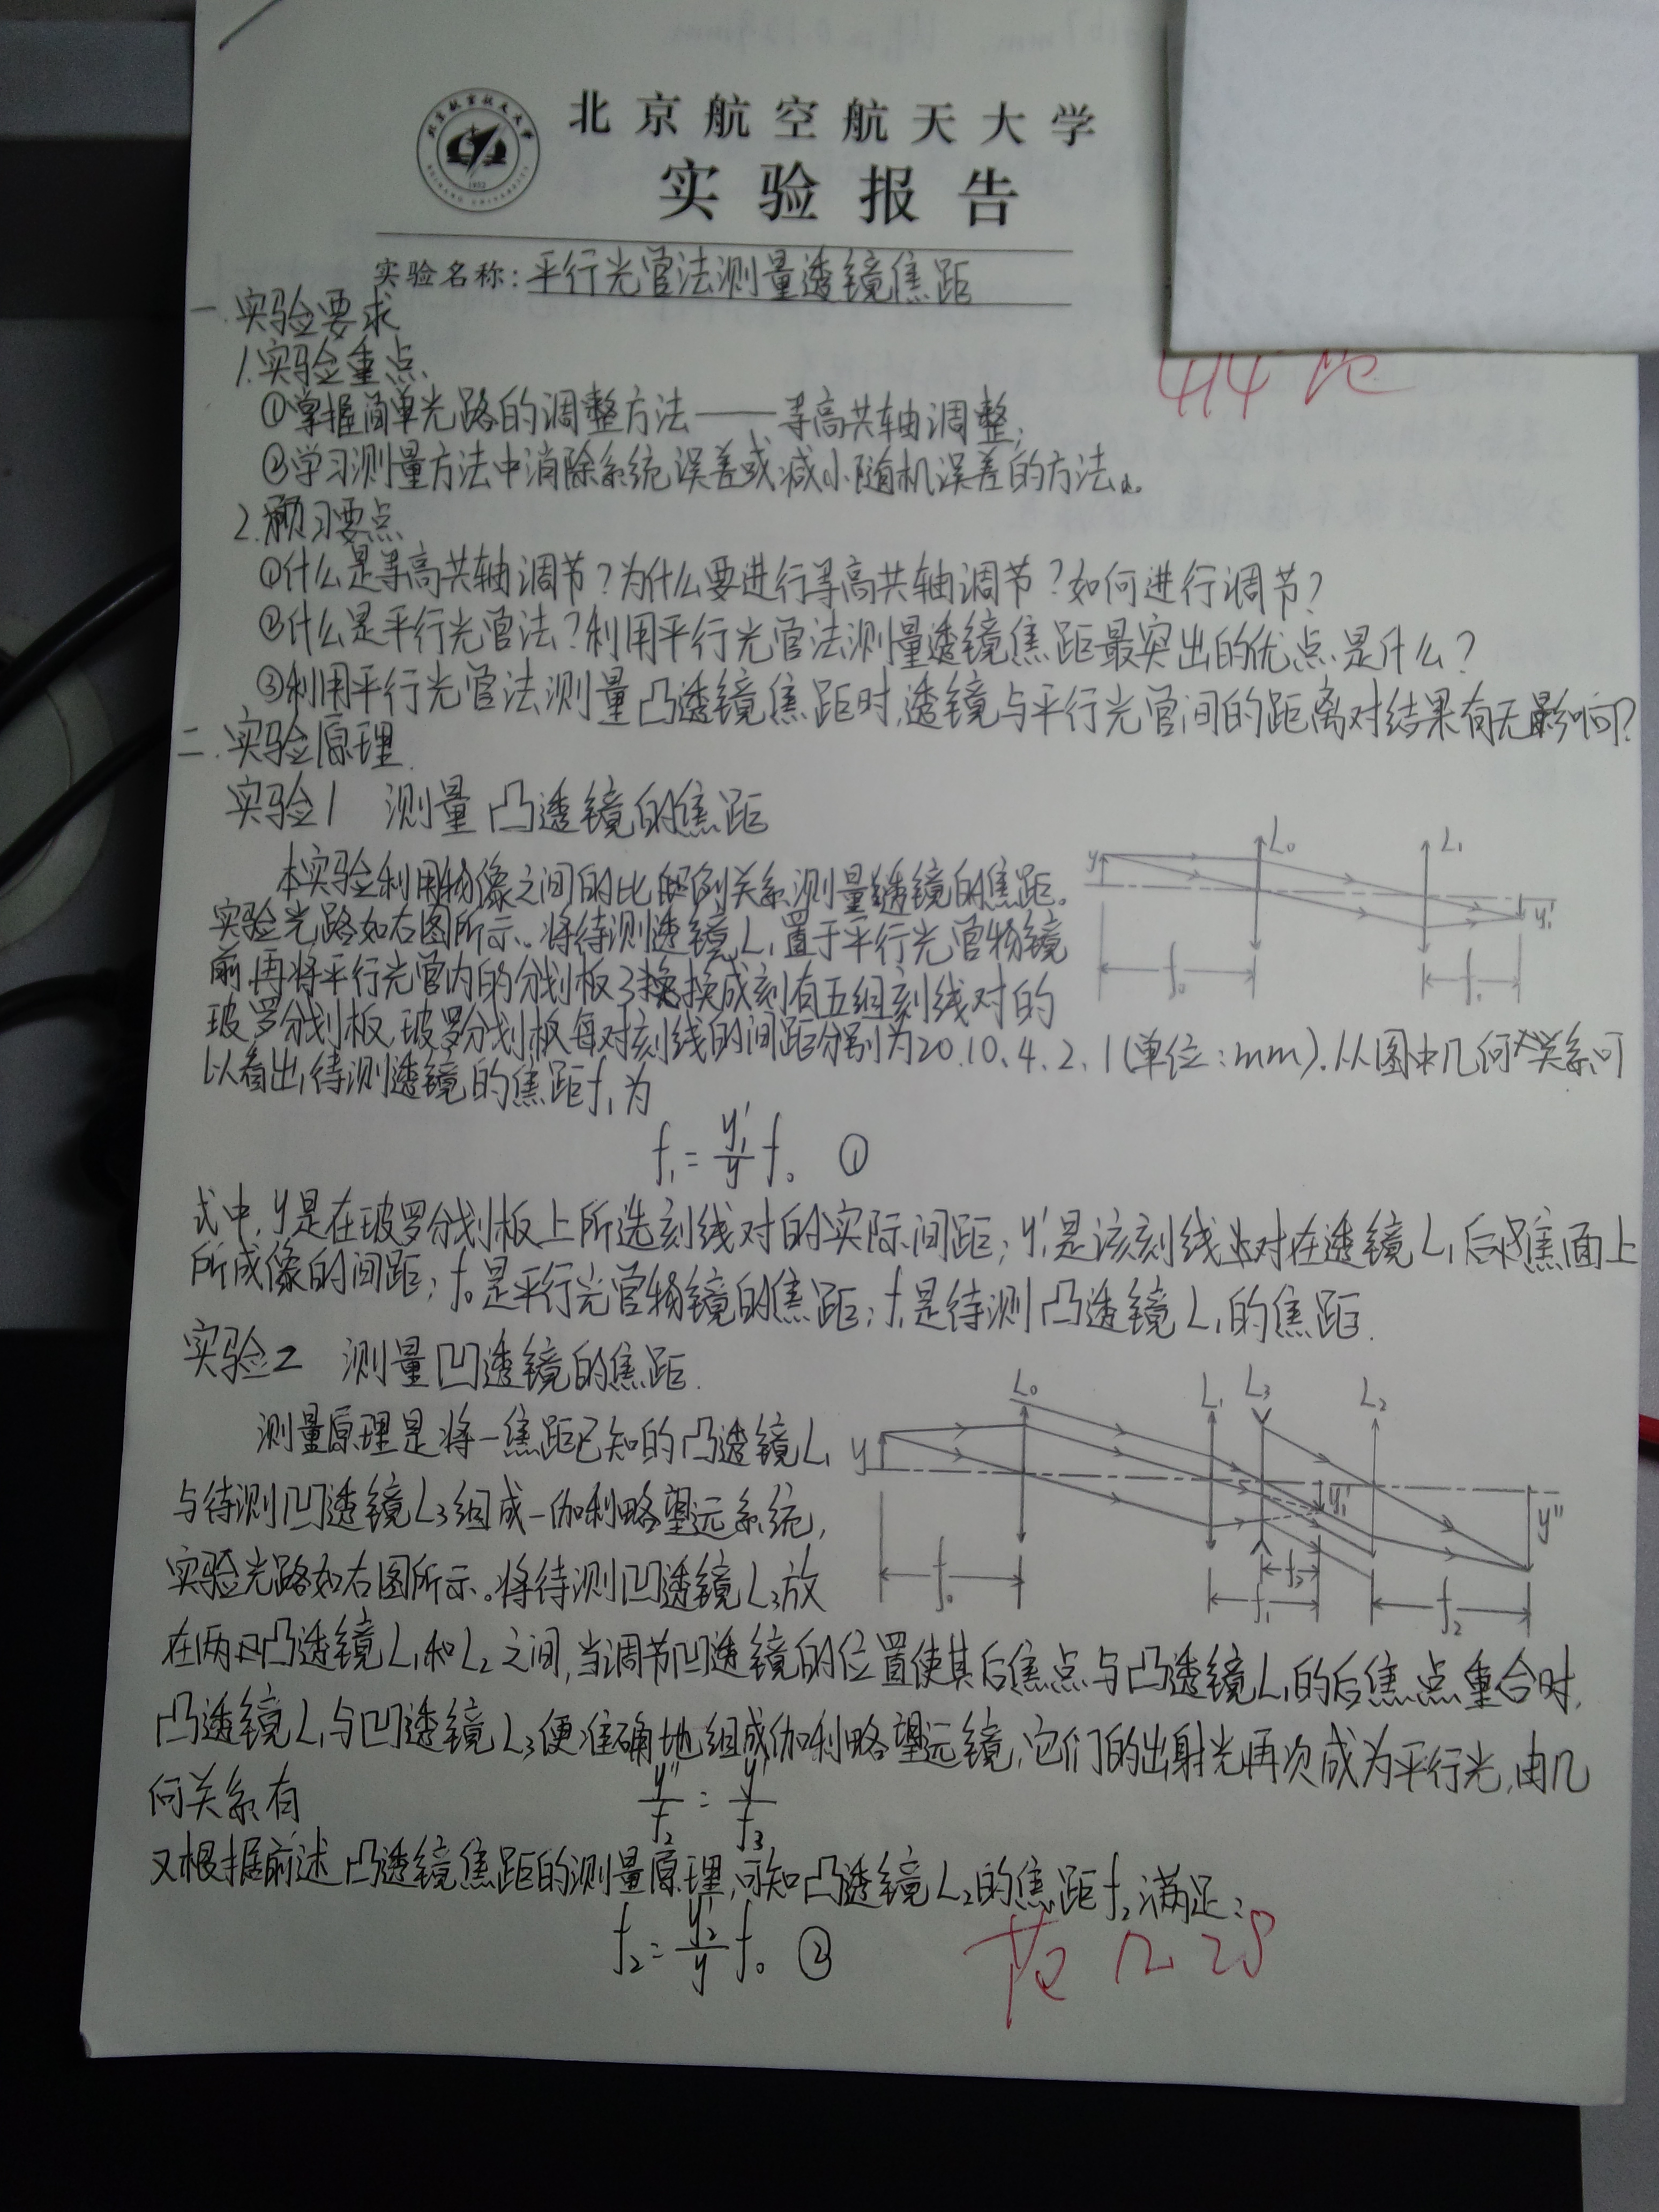 北京航空航天大学
实验报告
实验名称:平行光管法测量透镜焦距
一.实验要求
1.实验重点
①掌握简单光路的调整方法——等高共轴调整;
②学习测量方法中消除系统误差或减小随机误差的方法。
2.预习要点
①什么是等高共轴调节?为什么要进行等高共轴调节?如何进行调节?
②什么是平行光管法?利用平行光管法测量透镜焦距最突出的优点是什么?
③利用平行光管法测量凸透镜焦距时,透镜与平行光管间的距离对结果有无影响?
二.实验原理
实验1 测量凸透镜的焦距
本实验利用物像之间的比例关系测量透镜的焦距。
实验光路如右图所示。将待测透镜L₁置于平行光管物镜
前,再将平行光管内的分划板3换成刻有五组刻线对的
玻罗分划板,玻罗分划板每对刻线的间距分别为20、10、4、2、1(单位:mm).从图中几何关系可
以看出,待测透镜的焦距f₁为
y L₀ L₁ y₁'
f₀ f₁
f₁=y₁'/y f₀ ①
式中,y是在玻罗分划板上所选刻线对的实际间距;y₁'是该刻线对在透镜L₁后焦面上
所成像的间距;f₀是平行光管物镜的焦距;f₁是待测凸透镜L₁的焦距.
实验2 测量凹透镜的焦距.
测量原理是将一焦距已知的凸透镜L₁
与待测凹透镜L₃组成一伽利略望远系统,
实验光路如右图所示。将待测凹透镜L₃放
在两凸透镜L₁和L₂之间,当调节凹透镜的位置使其后焦点与凸透镜L₁的后焦点重合时,
凸透镜L₁与凹透镜L₃便准确地组成伽利略望远镜,它们的出射光再次成为平行光,由几
何关系有 y''/f₂=y₁'/f₃
y L₀ L₁ L₃ L₂ y₁' y''
f₀ f₁ f₃ f₂
又根据前述凸透镜焦距的测量原理,可知凸透镜L₂的焦距f₂满足:
f₂=y₂'/y f₀ ②